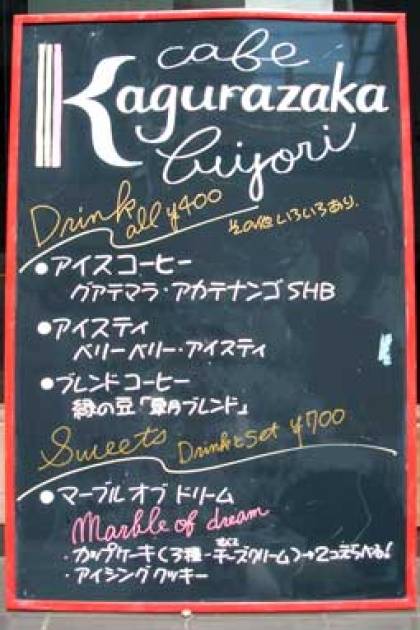 cafe
Kagurazaka
biyori
Drink all ¥400
その他いろいろあり、
●アイスコーヒー
グアテマラ・アカテナンゴ SHB
●アイスティ
ベリーベリー・アイスティ
●ブレンドコーヒー
緑の豆「皐月ブレンド」
Sweets Drinkとset ¥700
●マーブル オブ ドリーム
Marble of dream
・カップケーキ(3種-チーズクリーム)→2コえらべる!
・アイシングクッキー